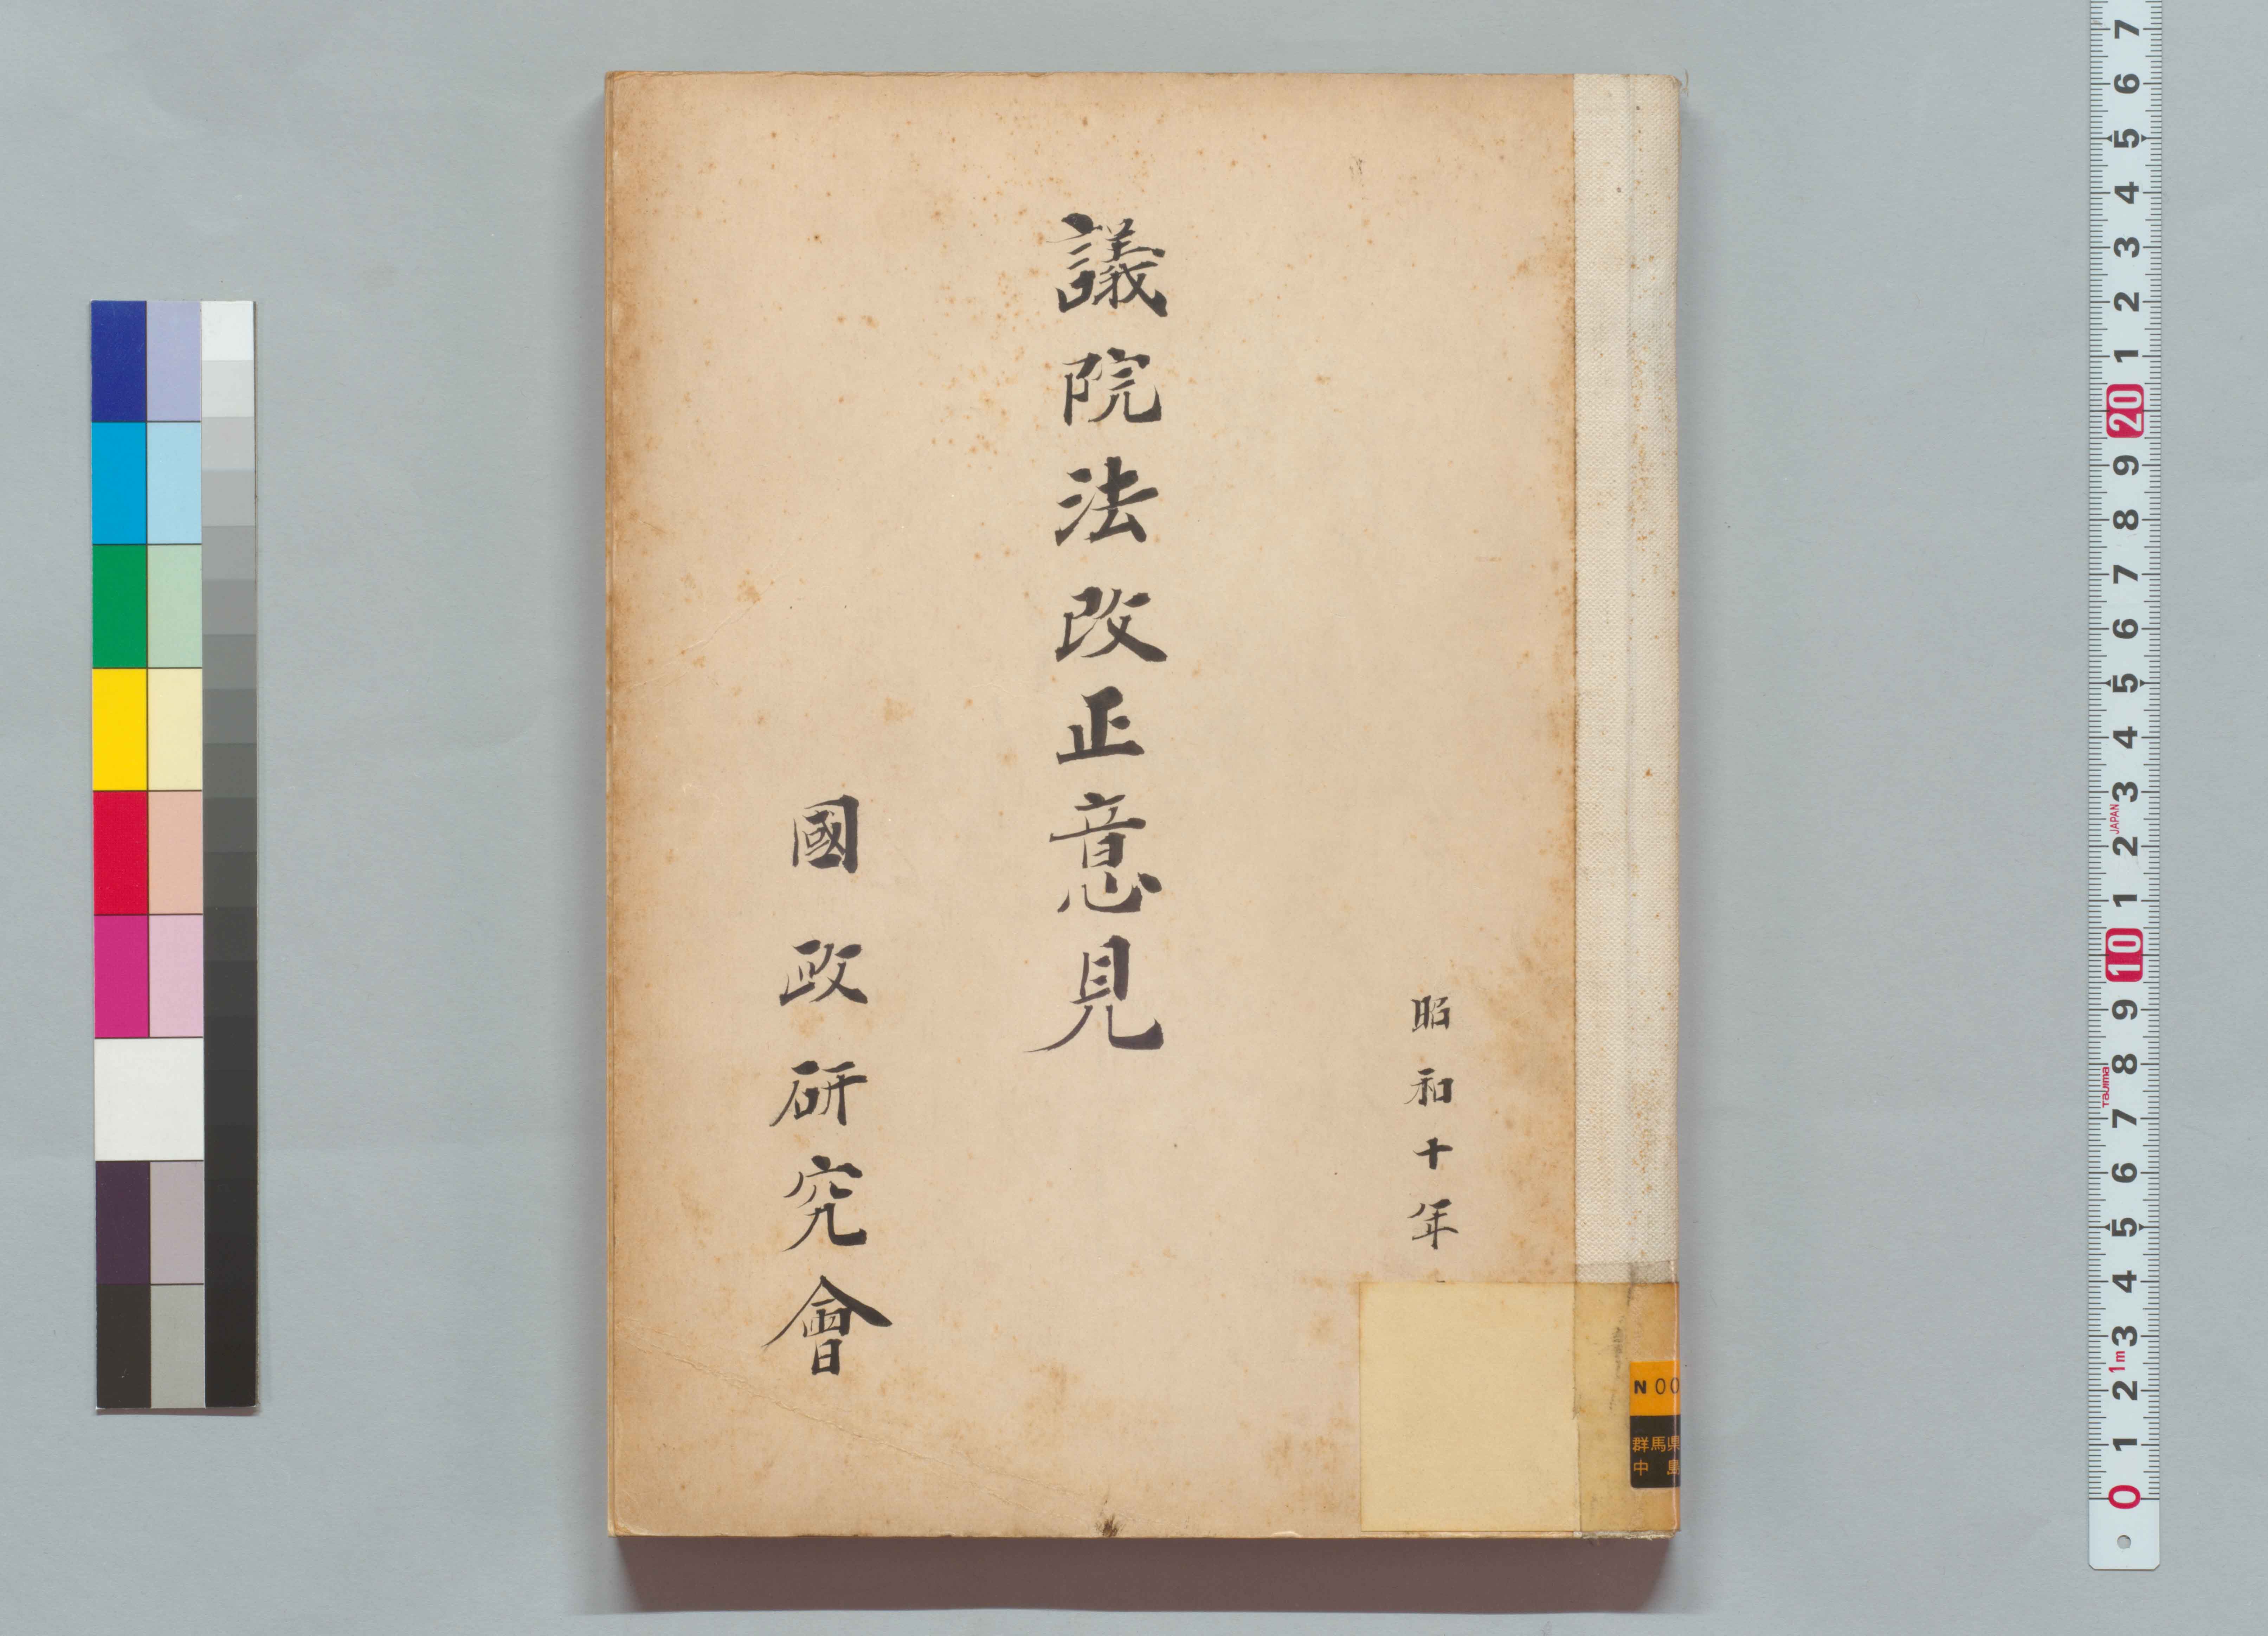 昭和十年
議院法改正意見
國政研究會
N 00
群馬県
中島
7
6
5
4
3
2
1
20
9
8
7
6
5
4
3
JAPAN
2
1
10
9
8
Tajima
7
6
5
4
3
1m
2
1
0